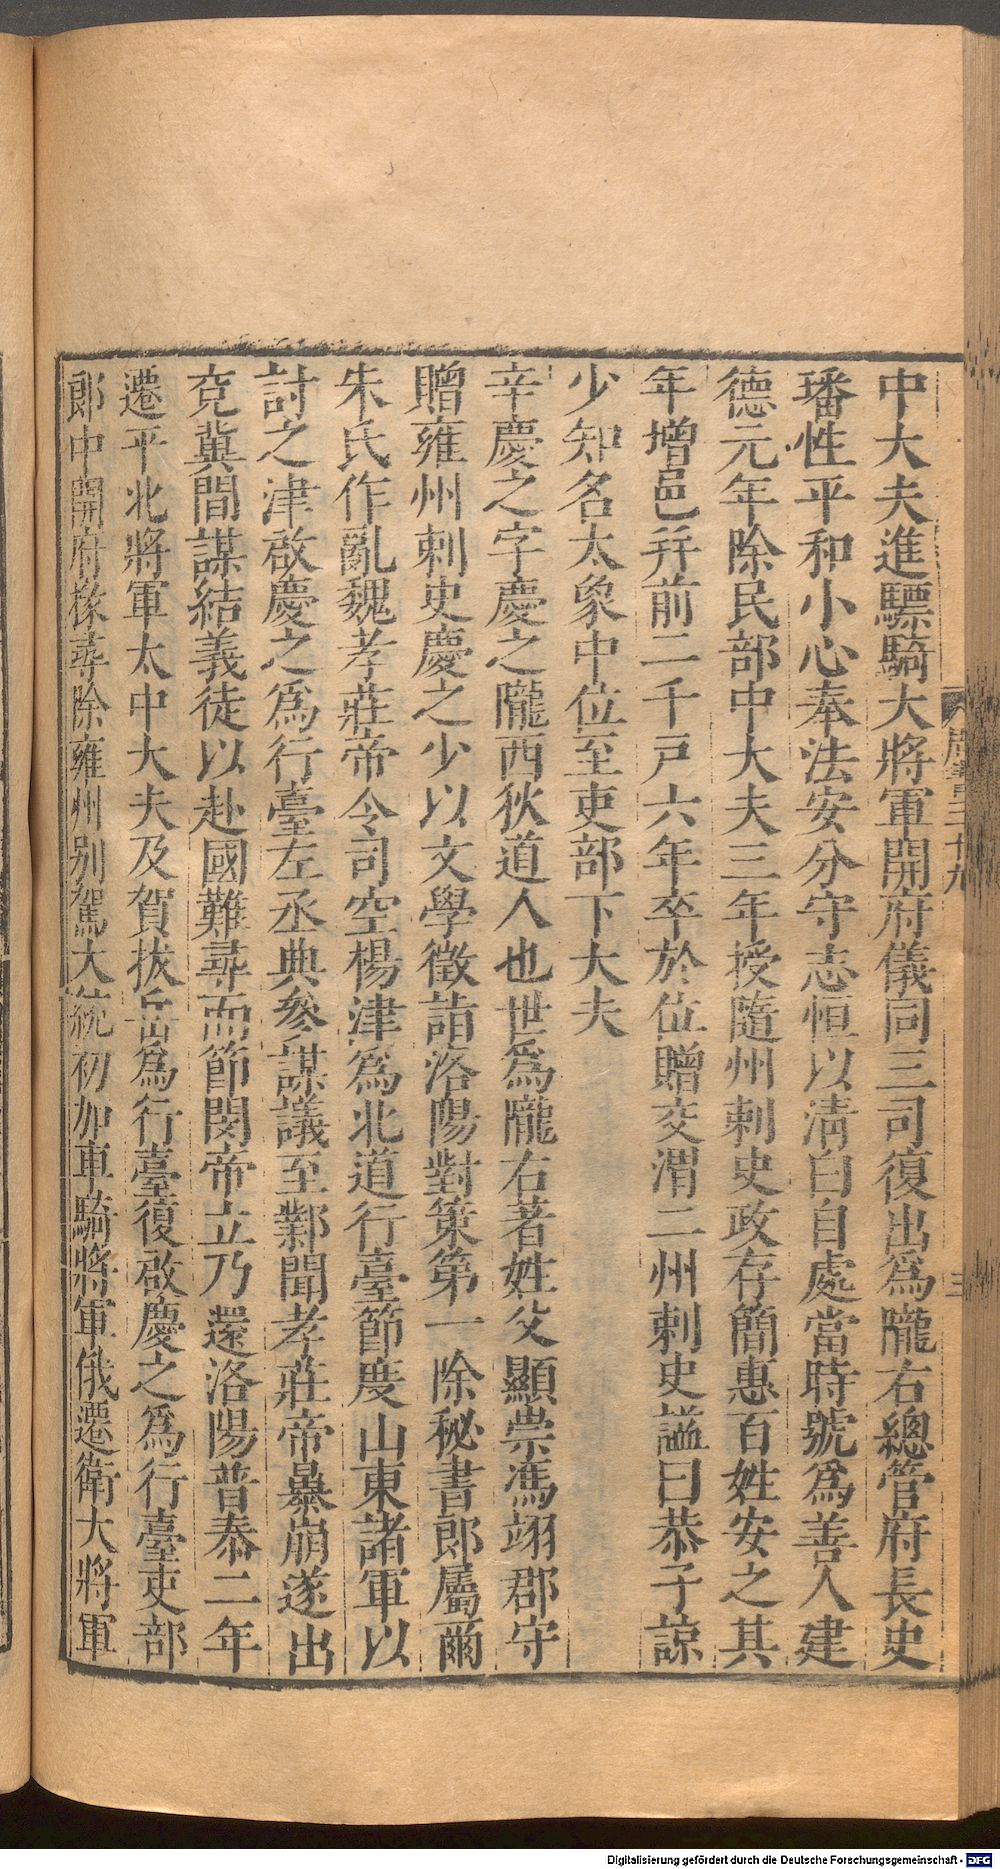 中大夫進驃騎大將軍開府儀同三司復出爲隴右總管府長史
璠性平和小心奉法安分守志恒以清白自處當時號爲善人建
德元年除民部中大夫三年授隨州刺史政存簡惠百姓安之其
年增邑并前二千戸六年卒於位贈交渭二州刺史謚曰恭子諒
少知名大象中位至吏部下大夫
辛慶之字慶之隴西狄道人也世爲隴右著姓父顯崇馮翊郡守
贈雍州刺史慶之少以文學徵詣洛陽對策第一除秘書郎屬爾
朱氏作亂魏孝莊帝令司空楊津爲北道行臺節度山東諸軍以
討之津啟慶之爲行臺左丞典參謀議至鄴聞孝莊帝暴崩遂出
兗冀間謀結義徒以赴國難尋而節閔帝立乃還洛陽普泰二年
遷平北將軍太中大夫及賀拔岳爲行臺復啟慶之爲行臺吏部
郎中開府掾尋除雍州別駕大統初加車騎將軍俄遷衛大將軍
周書三十九
三
Digitalisierung gefördert durch die Deutsche Forschungsgemeinschaft - DFG